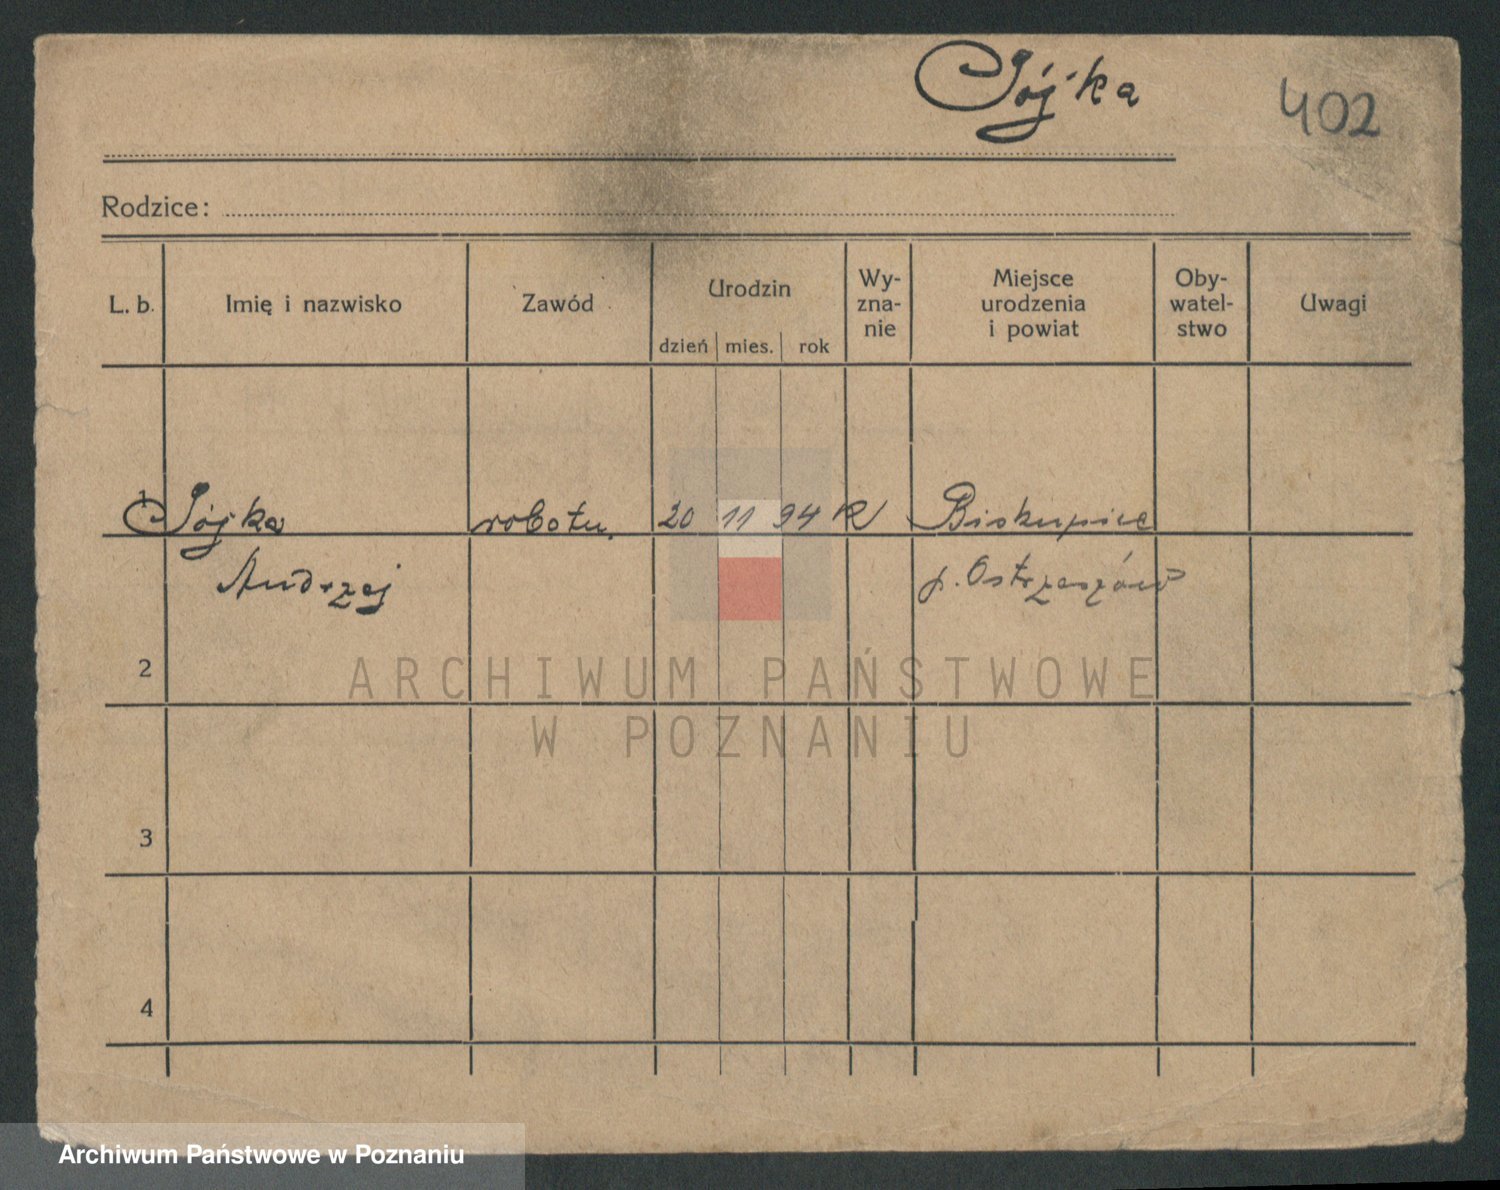 Sójka
402
Rodzice:
L. b. Imię i nazwisko Zawód Urodzin dzień mies. rok Wy-zna-nie Miejsce urodzenia i powiat Oby-watel-stwo Uwagi
1 Sójka robotn. 20 11 94 K Biskupice
Andrzej p. Ostrzeszów
2
ARCHIWUM PAŃSTWOWE
W POZNANIU
3
4
Archiwum Państwowe w Poznaniu